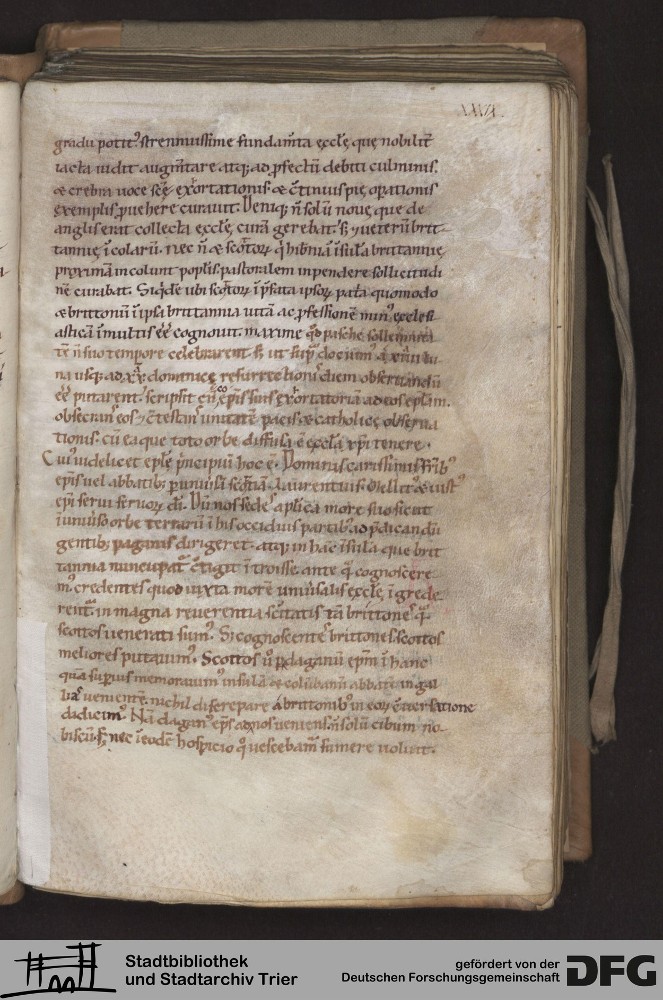 XXVI.
gradu potit᷒ strennuissime fundam̄ta ęccłę que nobilit̄
iacta uidit augm̄tare atq; ad ꝓfectū debiti culminis.
& crebra uoce scę exortationis & c̄tinuis pię opationis
exemplis ꝓuehere curauit. Deniq; n̄ solū nouę que de
anglis erat collecta ęccłę curā gerebat. sꝫ & ueterū brit
tannię īcolarū. Nec n̄ & scottoꝝ q̇ hibniā īsulā brittannię
proximā incolunt poplis pastoralem inpendere sollicitudi
nē curabat. Siq̇dē ubi scottoꝝ ī p̄fata ipsoꝝ pat̄a quomodo
& brittonū ī ipsa brittannia uitā ac ꝓfessionē min᷒ ęccłesi
asticā ī multis eē cognouit. maxime qd̄ pasche sollemnita
tē n̄ suo tempore celebrarent sꝫ ut sup̄ docuim᷒ a xiiii lu
na usq; ad xx dominicę resurrectionis diem obseruandū
eē putarent. scripsit cū coep̄is suis exortatoriā ad eos ep̄lam.
obsecrans eos & c̄testans unitatē pacis & catholicę obserua
tionis. cū ea que toto orbe diffusa ē ęccła xp̄i tenere.
Cui᷒ uidelicet ep̄lę p̄ncipiū hoc ē. Dominis carissimis fr̄ib᷒
ep̄is uel abbatib; p uniuersā scottiā. Laurentius. Mellit᷒ & iust᷒
ep̄i serui seruoꝝ dī. Dū nos sedes ap̄lica more suo sicut
ī uniuso orbe terrarū ī his occiduis partib᷒ ad p̄dicandū
gentib; paganis dirigeret. atq; in hac īsula que brit
tannia nuncupat᷒ c̄tigit ītroisse. ante q̄ cognoscere
m᷒. credentes quod iuxta morē uniusalis ęccłę īgrede
rent᷒. in magna reuerentia sc̄itatis tā brittones q̄
scottos uenerati sum᷒. Sꝫ cognoscentes brittones. scottos
meliores putauim᷒. Scottos ū p daganū ep̄m ī hanc
quā supius memorauim᷒ insulā & colūbanū abbatē in gal
lias ueniente. nichil discrepare a brittonib᷒ in eoꝝ c̄uersatione
didicim᷒. Nā dagan᷒ ep̄s ad nos ueniens n̄ solū cibum no-
biscū. sꝫ nec ī eodē hospicio q̊ uescebam᷒ sumere uoluit.
Stadtbibliothek
und Stadtarchiv Trier
gefördert von der
Deutschen Forschungsgemeinschaft
DFG